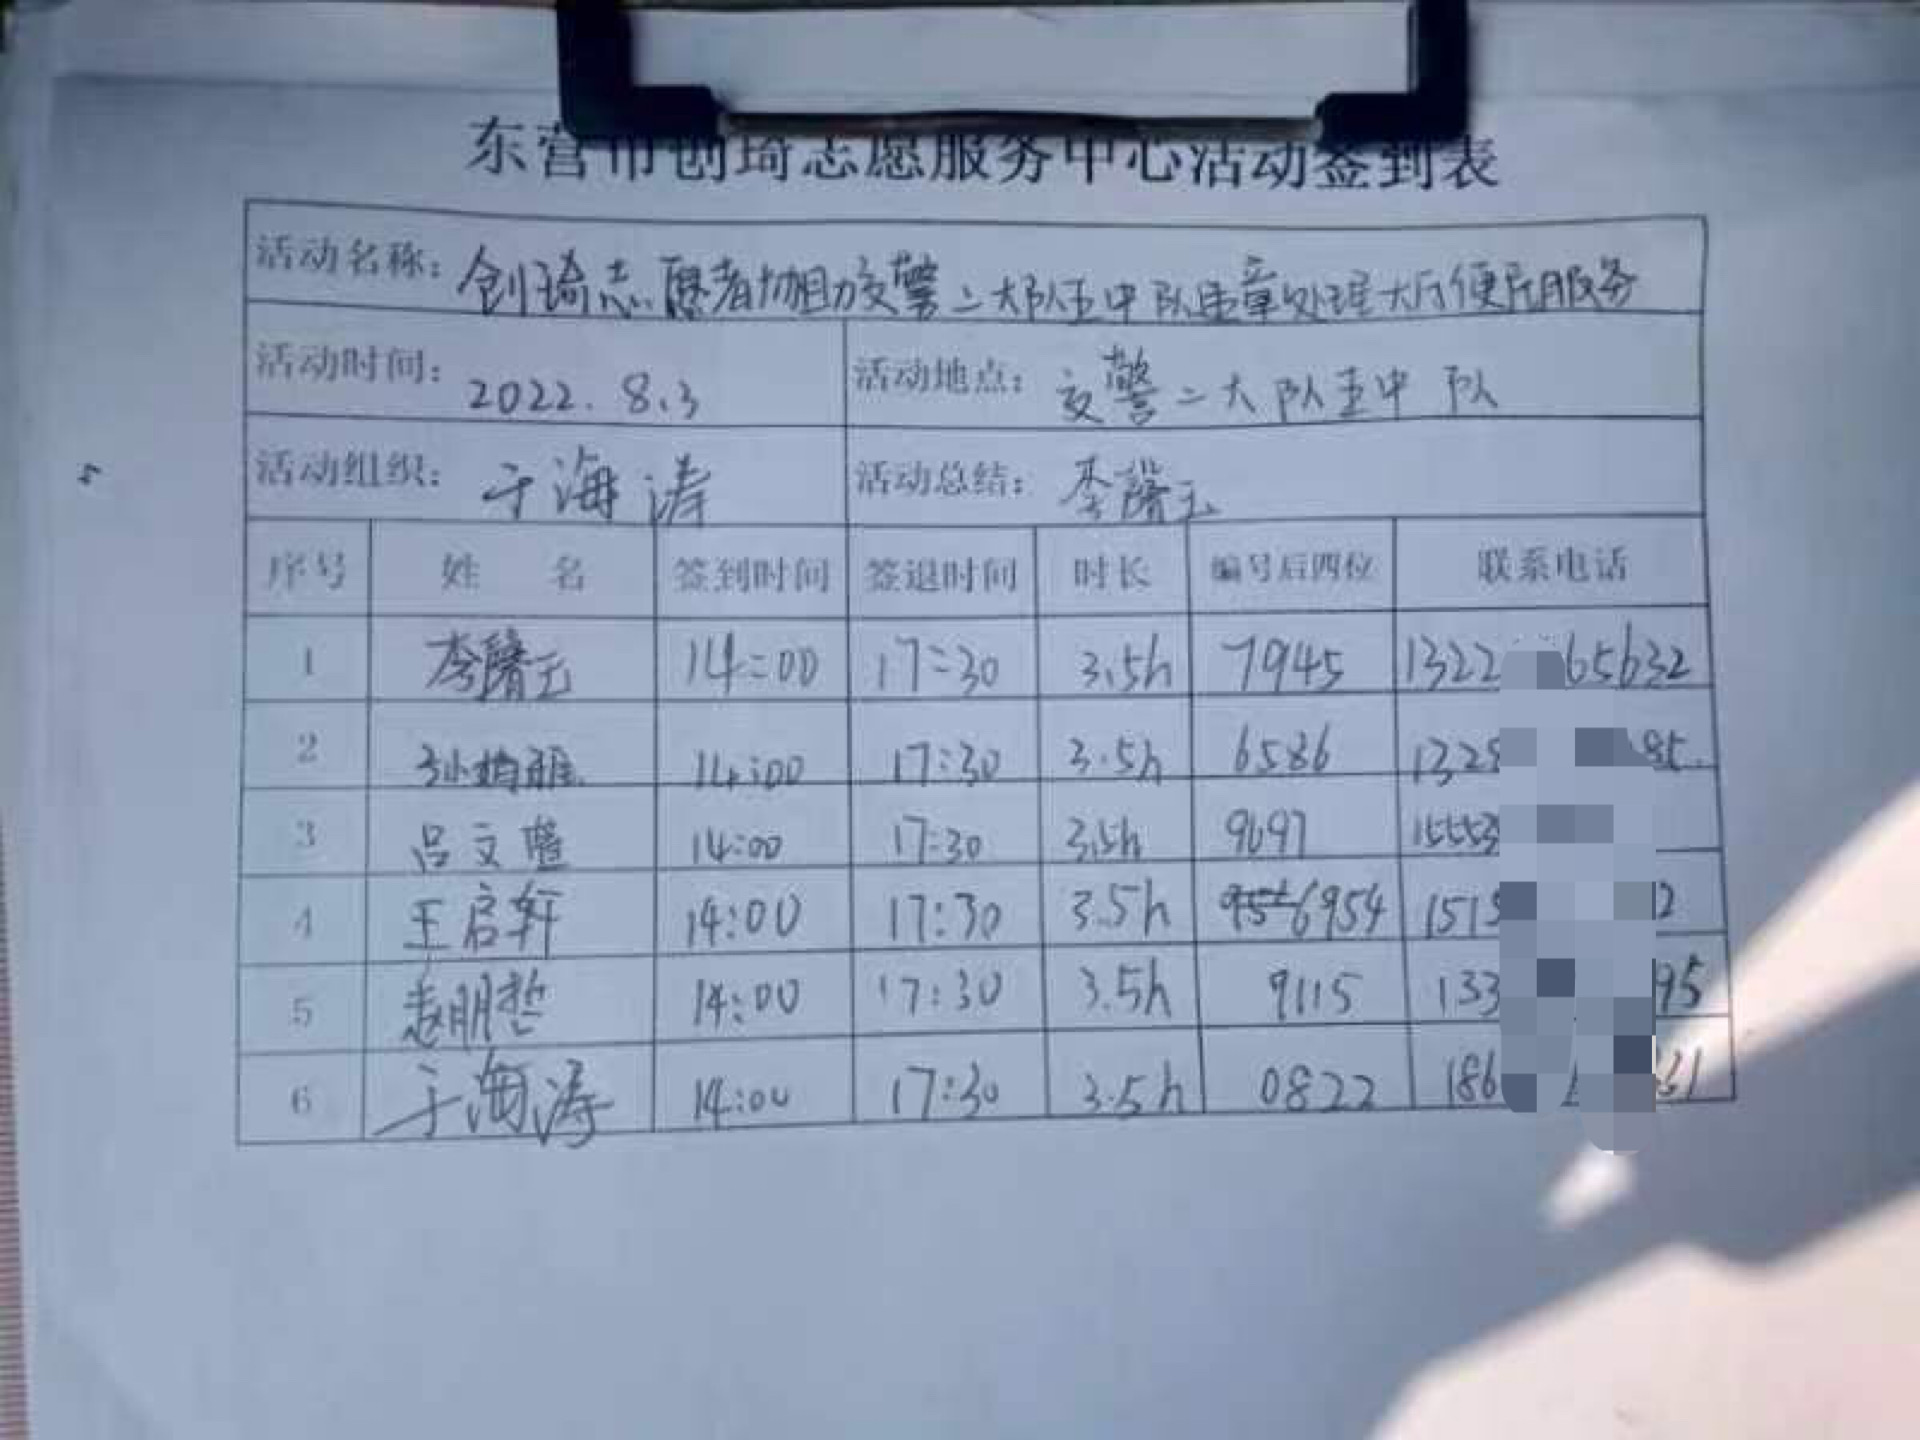 东营市创琦志愿服务中心活动签到表
活动名称: 创琦志愿者协助交警二大队五中队违章处理大厅便民服务
活动时间: 2022.8.3 活动地点: 交警二大队五中队
活动组织: 于海涛 活动总结: 李馨玉
序号 姓名 签到时间 签退时间 时长 编号后四位 联系电话
1 李馨玉 14:00 17:30 3.5h 7945 1322 65632
2 14:00 17:30 3.5h 6586 1328 85
3 吕文 14:00 17:30 3.5h 9697 15553
4 王启轩 14:00 17:30 3.5h 6954 1515 2
5 赵明哲 14:00 17:30 3.5h 9115 133 95
6 于海涛 14:00 17:30 3.5h 0822 186 61